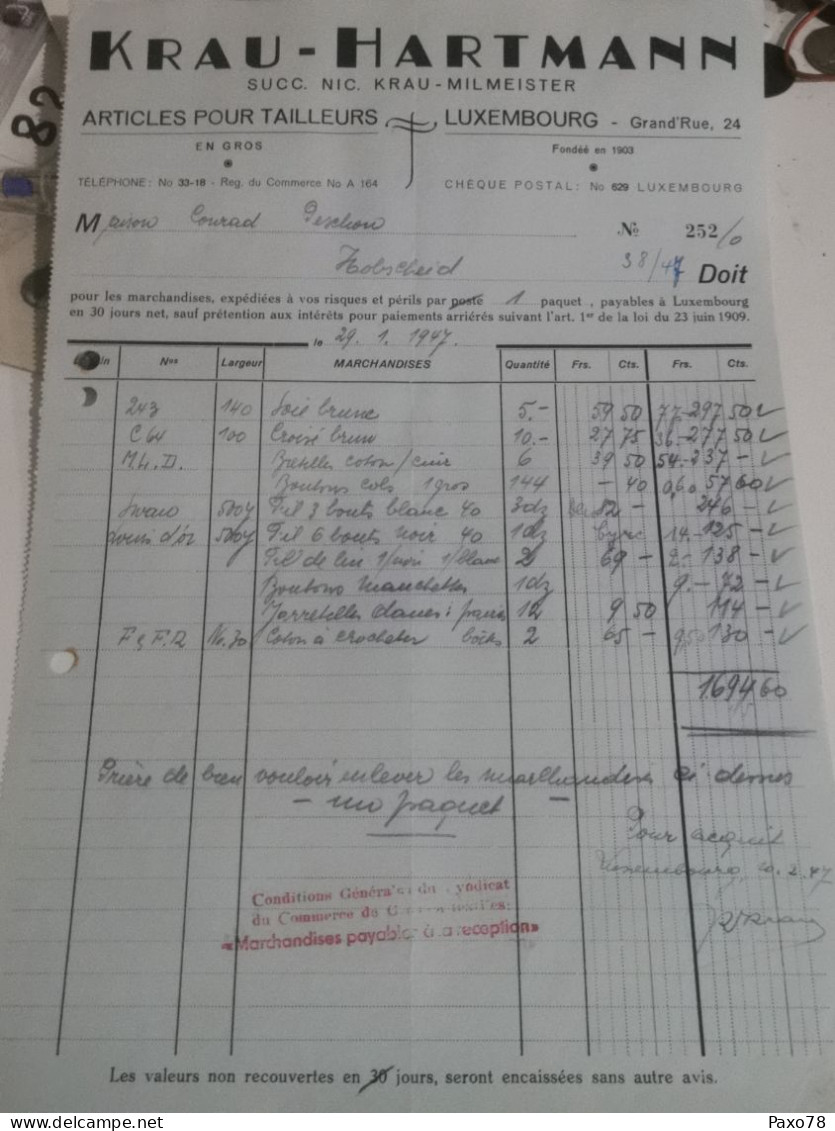 KRAU-HARTMANN
SUCC. NIC. KRAU-MILMEISTER
ARTICLES POUR TAILLEURS LUXEMBOURG - Grand'Rue, 24
EN GROS Fondéé en 1903
TÉLÉPHONE: No 33-18 - Reg. du Commerce No A 164 CHÈQUE POSTAL: No 629 LUXEMBOURG
Maison Conrad Peschon № 252/0
Hobscheid 38/47 Doit
pour les marchandises, expédiées à vos risques et périls par poste 1 paquet, payables à Luxembourg
en 30 jours net, sauf prétention aux intérêts pour paiements arriérés suivant l'art. 1er de la loi du 23 juin 1909.
le 29. 1. 1947.
Nos Largeur MARCHANDISES Quantité Frs. Cts. Frs. Cts.
243 140 Soie brune 5.- 59 50 77.- 297 50
C 64 100 Croisé brun 10.- 27 75 36.- 277 50
M.L.D. Bretelles coton/cuir 6 39 50 54.- 237 -
Boutons cols 1 gros 144 - 40 0,60 57 60
Swaro 500y Fil 3 bouts blanc 40 3dz 82 - 246 -
Louis d'or 500y Fil 6 bouts noir 40 1dz 14.- 125 -
Fil de lin 1/noir 1/blanc 2 69 - 2.- 138 -
Boutons manchettes 1dz 9.- 72 -
Jarretelles dames: paires 12 9 50 114 -
F & F.R No. 30 Coton à crocheter boîtes 2 65 - 9,50 130 -
1694 60
Prière de bien vouloir enlever les marchandises ci-dessus
- un paquet -
Pour acquit
Luxembourg, 10. 2. 47
Conditions Générales du Syndicat
du Commerce de Gros en textiles:
«Marchandises payables à la reception»
Les valeurs non recouvertes en 30 jours, seront encaissées sans autre avis.
Paxo78